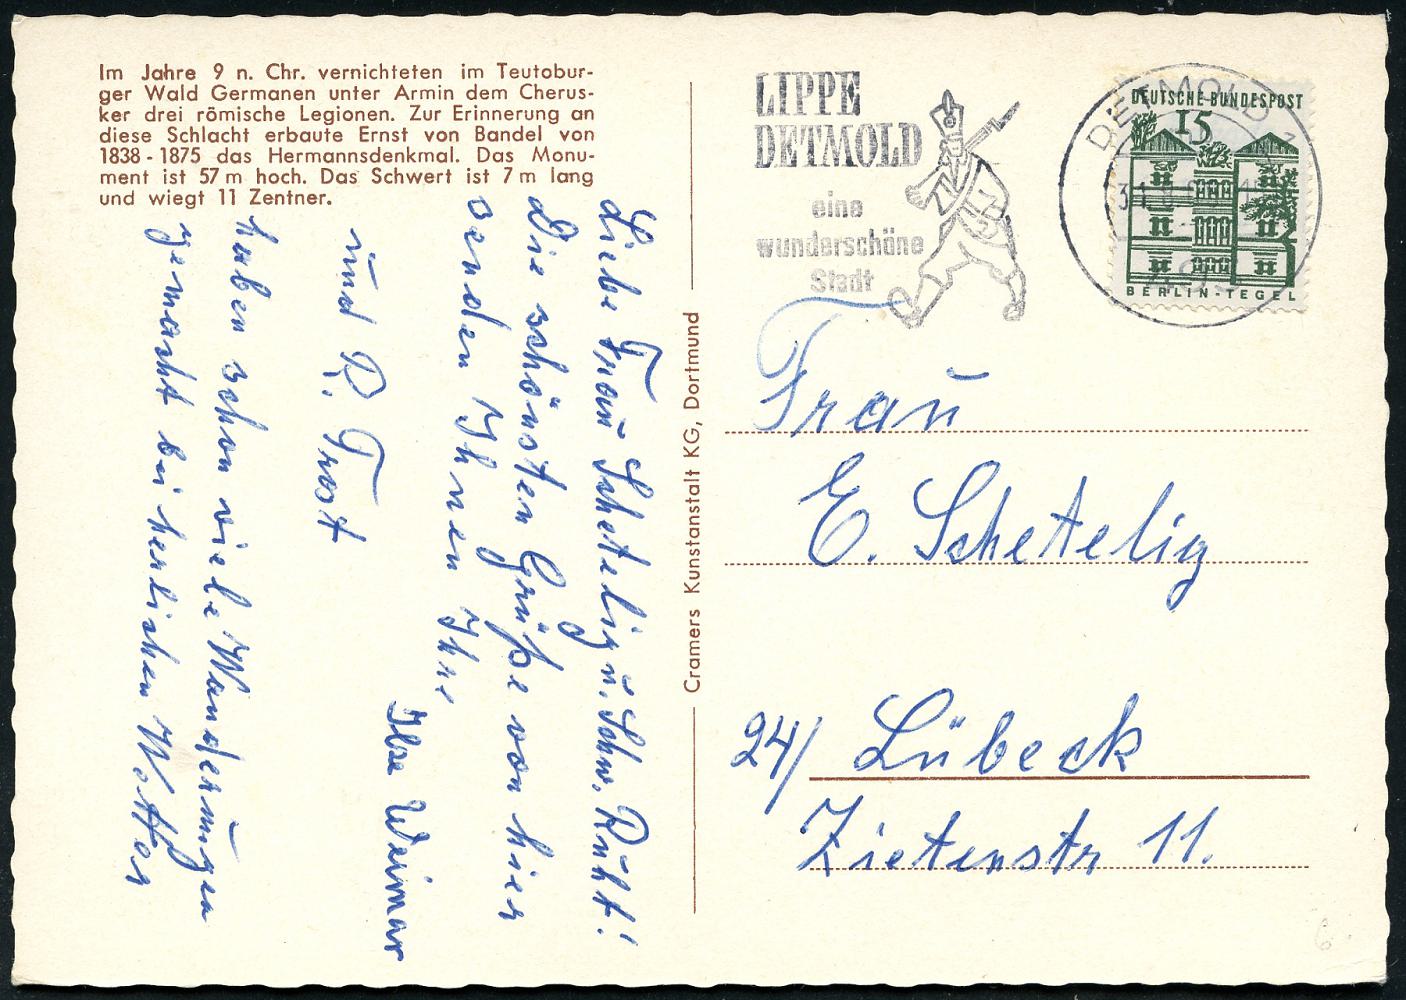 Im Jahre 9 n. Chr. vernichteten im Teutobur-
ger Wald Germanen unter Armin dem Cherus-
ker drei römische Legionen. Zur Erinnerung an
diese Schlacht erbaute Ernst von Bandel von
1838-1875 das Hermannsdenkmal. Das Monu-
ment ist 57 m hoch. Das Schwert ist 7 m lang
und wiegt 11 Zentner.
Liebe Frau Schetelig u. Schw. Ruht!
Die schönsten Grüße von hier
senden Ihnen Ihre
Ilse Weimar
und R. Trost
haben schon viele Wanderungen
gemacht bei herlichen Wetter
Cramers Kunstanstalt KG, Dortmund
LIPPE
DETMOLD
eine
wunderschöne
Stadt
DETMOLD
DEUTSCHE BUNDESPOST
15
BERLIN-TEGEL
Frau
E. Schetelig
24/ Lübeck
Zietenstr 11.